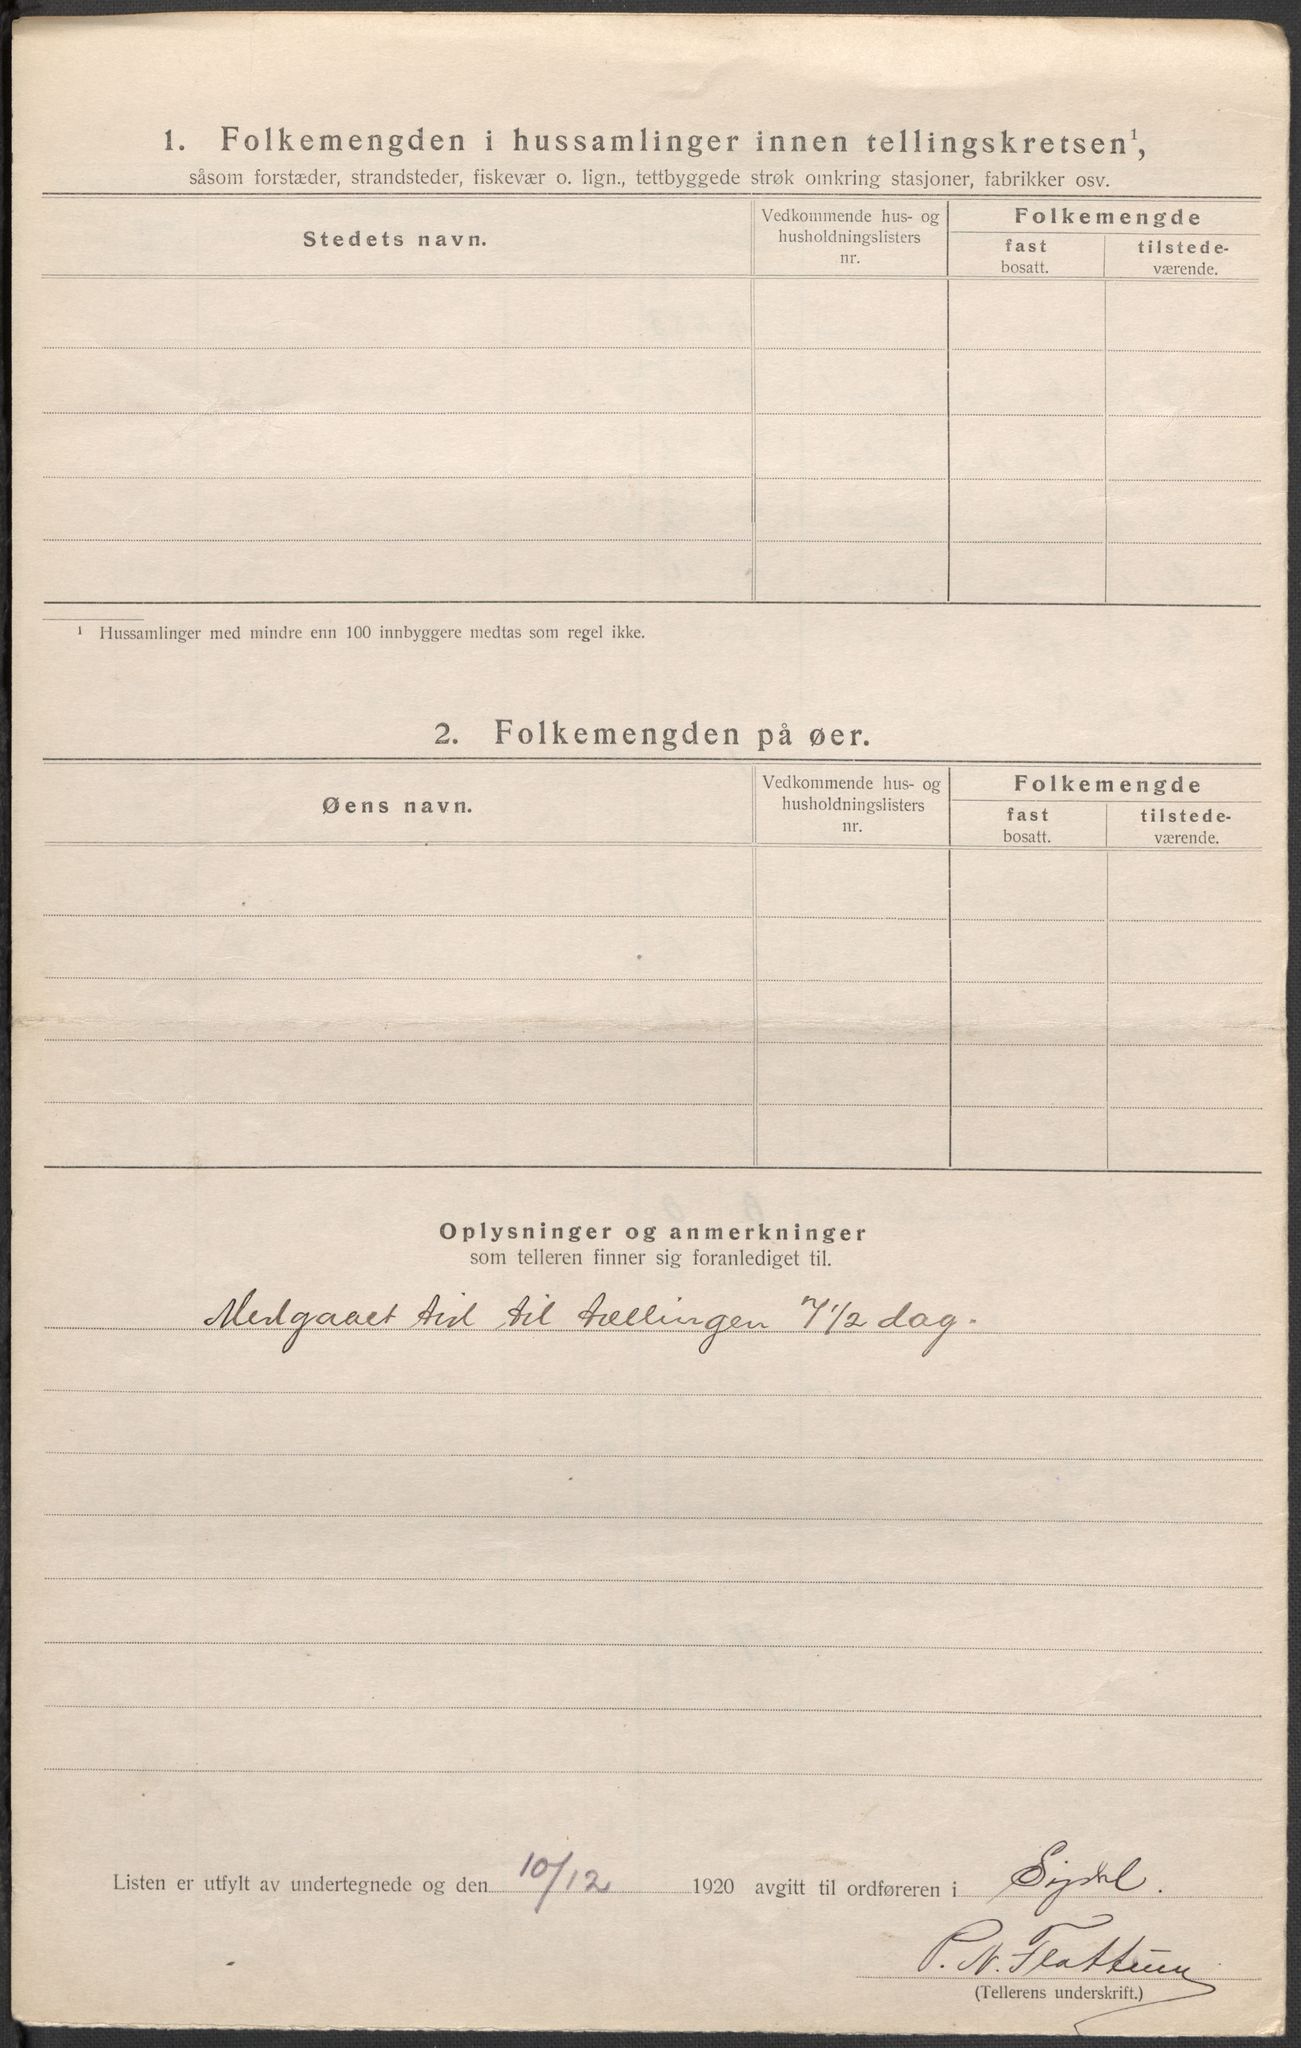 1. Folkemengden i hussamlinger innen tellingskretsen¹,
såsom forstæder, strandsteder, fiskevær o. lign., tettbyggede strøk omkring stasjoner, fabrikker osv.
Stedets navn.
Vedkommende hus- og
husholdningslisters
nr.
Folkemengde
fast
bosatt.
tilstede-
værende.
¹ Hussamlinger med mindre enn 100 innbyggere medtas som regel ikke.
2. Folkemengden på øer.
Øens navn.
Vedkommende hus- og
husholdningslisters
nr.
Folkemengde
fast
bosatt.
tilstede-
værende.
Oplysninger og anmerkninger
som telleren finner sig foranlediget til.
Medgaaet tid til tællingen 7 1/2 dag.
Listen er utfylt av undertegnede og den 10/12 1920 avgitt til ordføreren i
P. N. Flattum
(Tellerens underskrift.)